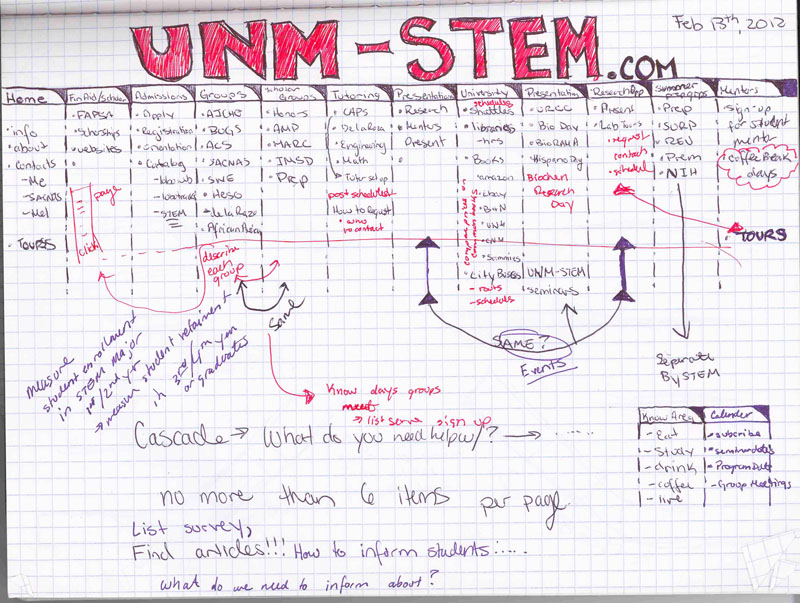 UNM-STEM.COM
Feb 13th, 2012
Home
info
about
contacts
-Me
SACNAS
-Mel
TOURS
Fin Aid/Scholar
FAFSA
Scholarships
websites
page
click
Admissions
Apply
Registration
Orientation
Catalog
-STEM
Groups
AICHE
BUGS
ACS
SACNAS
SWE
HESO
de la Raza
describe
each
group
Scholar
Groups
Honors
AMP
MARC
IMSD
PREP
Tutoring
CAPS
De la Raza
Engineering
Math
Tutor set up
post schedules!
How to Request
who
to contact
Presentations
Research
Mentors
Present
University
schedules
Shuttles
libraries
-hrs
Books
amazon
Ebay
BioN
UNM
CNM
City Buses
-routs
-schedules
Presentation
URCC
Bio Day
BioRAMA
Hispano Day
Biochem
Research
Day
UNM-STEM
seminars
Research Opp
Present
Lab Tours
request
contact
schedule
Summer
Prep
SURP
REU
Prem
NIH
Mentors
sign-up
for student
mentor
Coffee Break
days
TOURS
measure
student enrollment
in STEM major
1st/2nd yr
measure student retainment
in 3rd/4th yr
or graduates
Same
SAME?
Events
Separate
By STEM
Know days groups
meet
list serve sign up
Cascade → What do you need help w/? → .....
Know Area
-Eat
-Study
-drink
-coffee
-live
Calender
subscribe
seminar dates
Program Dates
-Group Meetings
no more than 6 items per page.
List survey,
Find articles!!! How to inform students:....
what do we need to inform about?